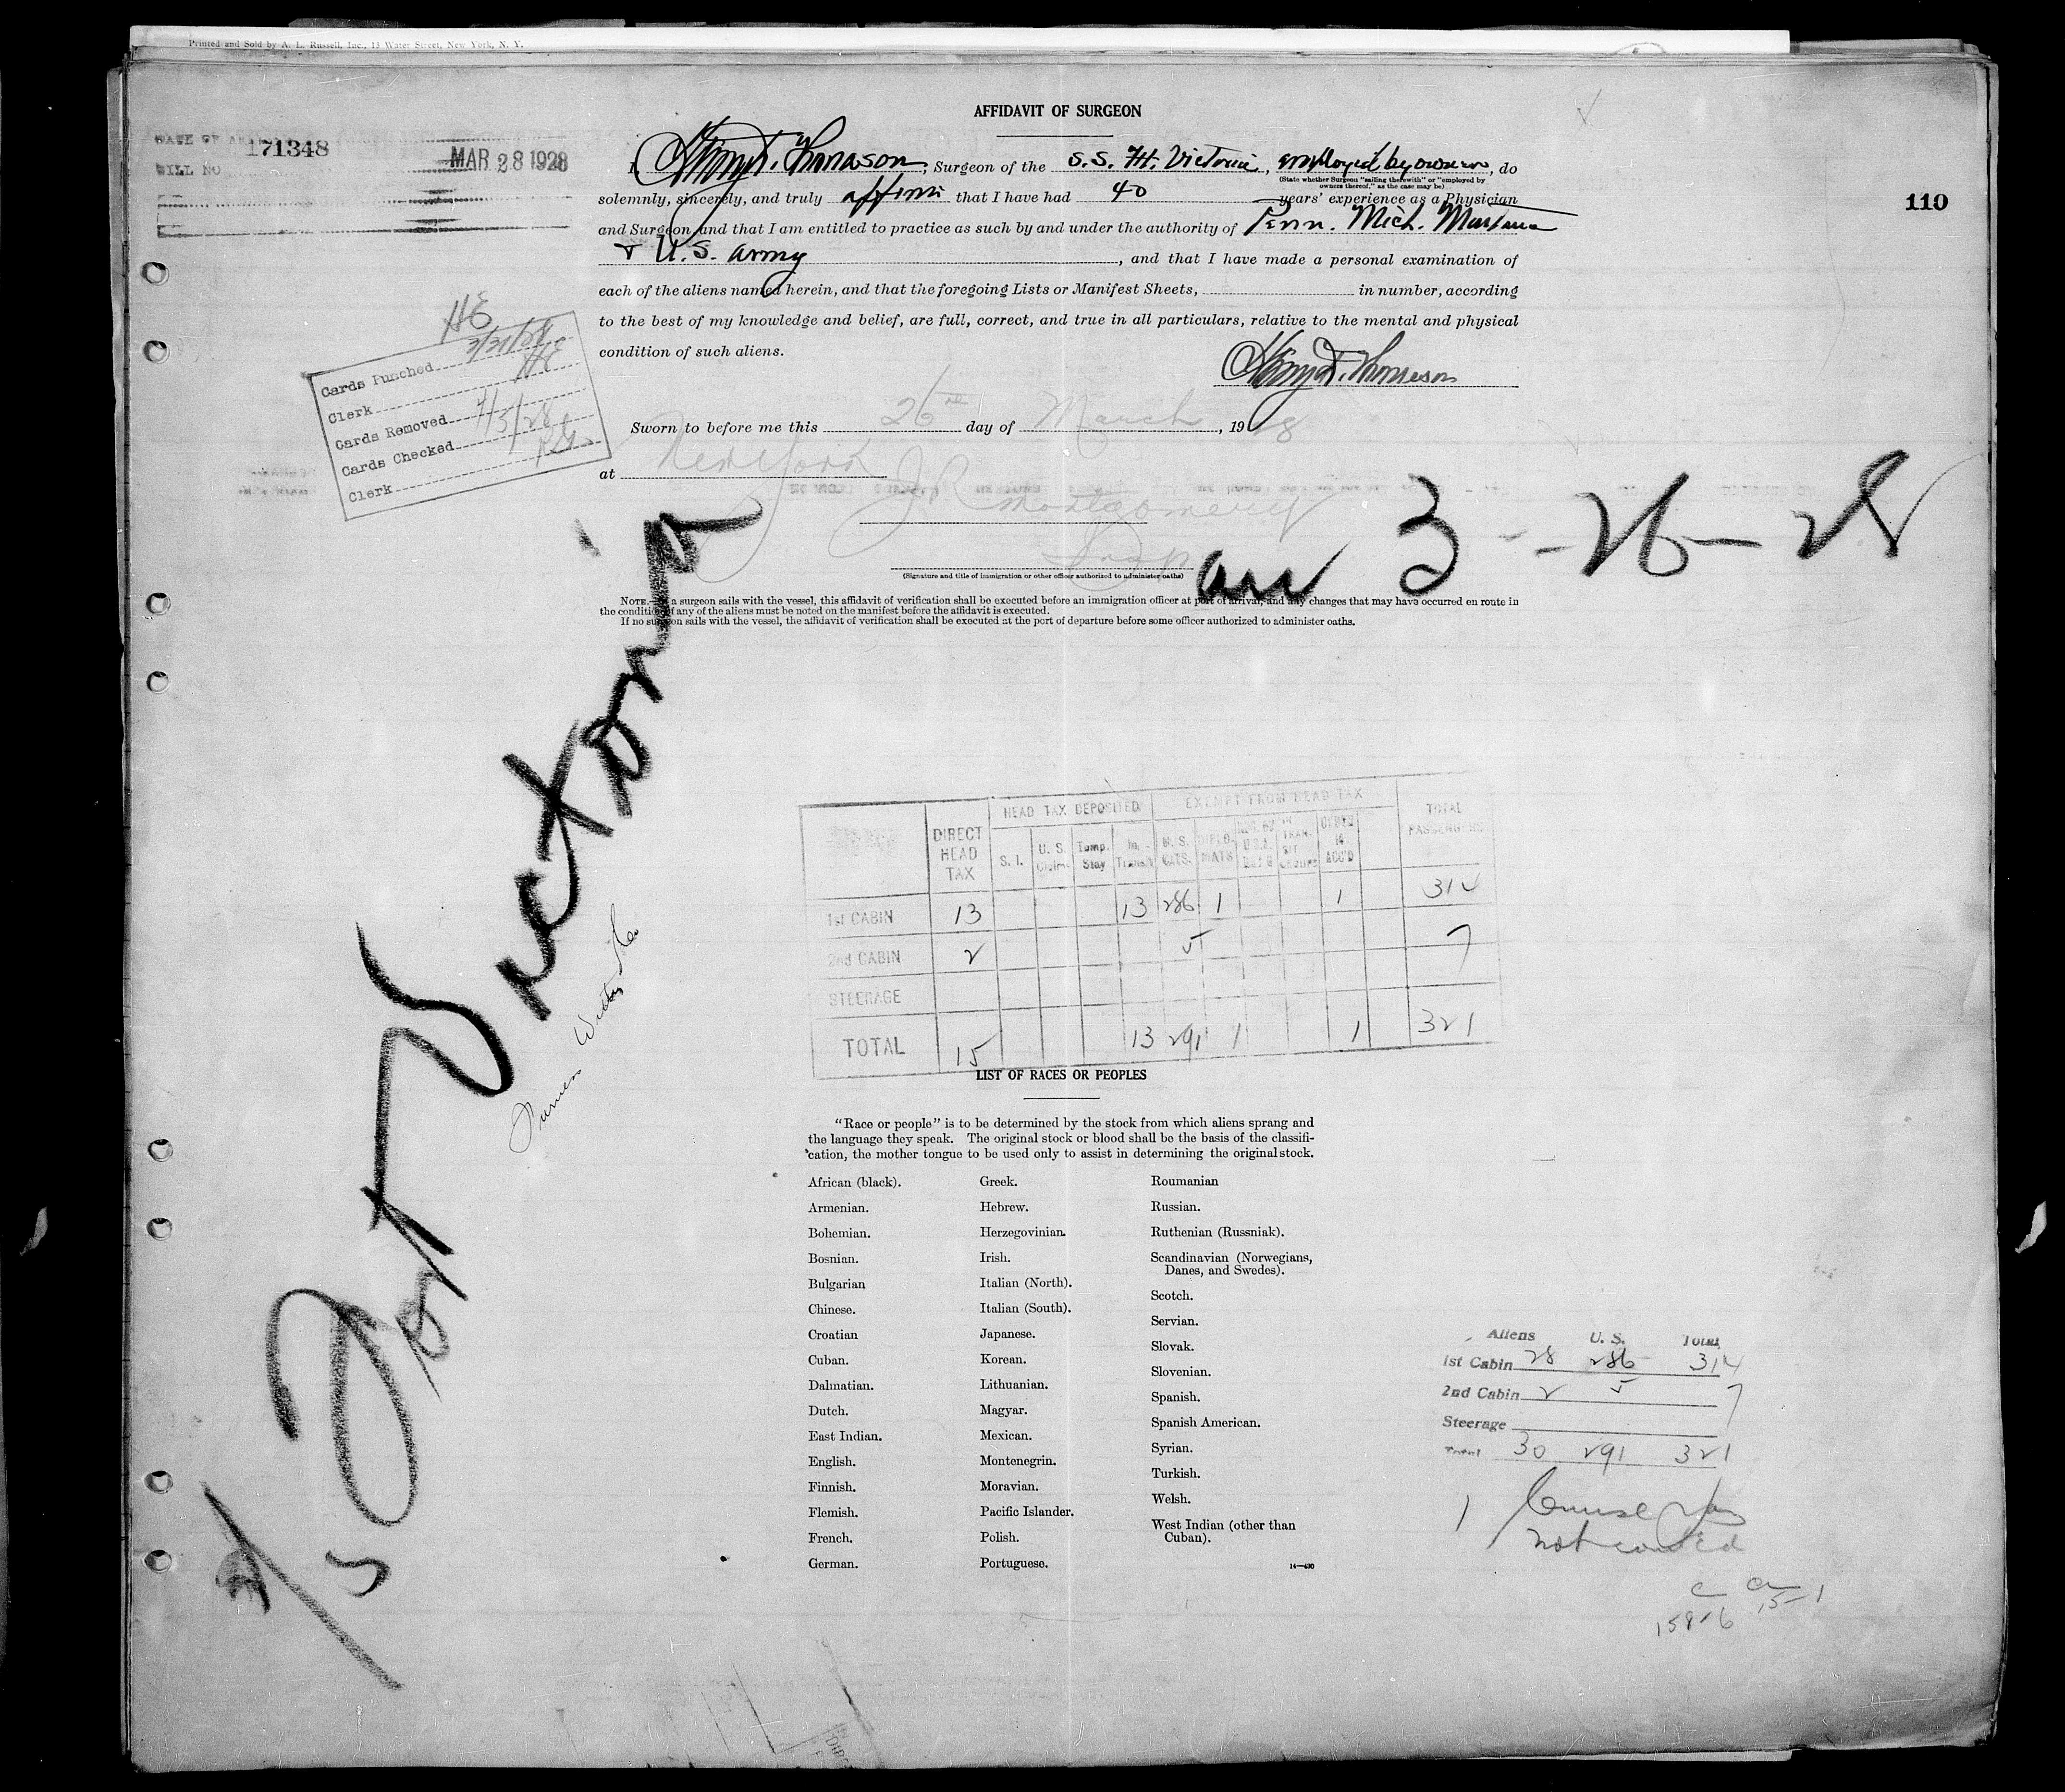 Printed and Sold by A. L. Russell, Inc., 13 Water Street, New York, N. Y.
AFFIDAVIT OF SURGEON
171348
BILL NO
MAR 28 1928
110
I, Thomason, Surgeon of the S.S. Ft. Victoria, employed by owners, do
(State whether Surgeon "sailing therewith" or "employed by
owners thereof," as the case may be)
solemnly, sincerely, and truly affirm that I have had 40 years' experience as a Physician
and Surgeon and that I am entitled to practice as such by and under the authority of Penn. Mich. Montana
+ U.S. Army, and that I have made a personal examination of
each of the aliens named herein, and that the foregoing Lists or Manifest Sheets, in number, according
to the best of my knowledge and belief, are full, correct, and true in all particulars, relative to the mental and physical
condition of such aliens.
Thomason
HE
Cards Punched 3/31/28
Clerk HE
Cards Removed
Cards Checked 4/5/28
Clerk
Sworn to before me this 26th day of March, 1928
at New York
J R Montgomery
Insp
(Signature and title of immigration or other officer authorized to administer oaths)
arr 3--26-28
NOTE.—If a surgeon sails with the vessel, this affidavit of verification shall be executed before an immigration officer at port of arrival, and any changes that may have occurred en route in
the condition of any of the aliens must be noted on the manifest before the affidavit is executed.
If no surgeon sails with the vessel, the affidavit of verification shall be executed at the port of departure before some officer authorized to administer oaths.
S/S Fort Victoria
Furness Withy
DIRECT HEAD TAX
HEAD TAX DEPOSITED
EXEMPT FROM HEAD TAX
TOTAL PASSENGERS
S. I. U. S. Temp. Stay In Transit U. S. CITS. DIPLOMATS
1st CABIN 13 13 286 1 1 314
2nd CABIN 2 5 7
STEERAGE
TOTAL 15 13 291 1 1 321
LIST OF RACES OR PEOPLES
"Race or people" is to be determined by the stock from which aliens sprang and
the language they speak. The original stock or blood shall be the basis of the classifi-
cation, the mother tongue to be used only to assist in determining the original stock.
African (black).
Armenian.
Bohemian.
Bosnian.
Bulgarian
Chinese.
Croatian
Cuban.
Dalmatian.
Dutch.
East Indian.
English.
Finnish.
Flemish.
French.
German.
Greek.
Hebrew.
Herzegovinian.
Irish.
Italian (North).
Italian (South).
Japanese.
Korean.
Lithuanian.
Magyar.
Mexican.
Montenegrin.
Moravian.
Pacific Islander.
Polish.
Portuguese.
Roumanian
Russian.
Ruthenian (Russniak).
Scandinavian (Norwegians,
Danes, and Swedes).
Scotch.
Servian.
Slovak.
Slovenian.
Spanish.
Spanish American.
Syrian.
Turkish.
Welsh.
West Indian (other than
Cuban).
14—430
Aliens U. S. Total
1st Cabin 28 286 314
2nd Cabin 2 5 7
Steerage
Total 30 291 321
1 Cruise
not counted
158-6 15-1